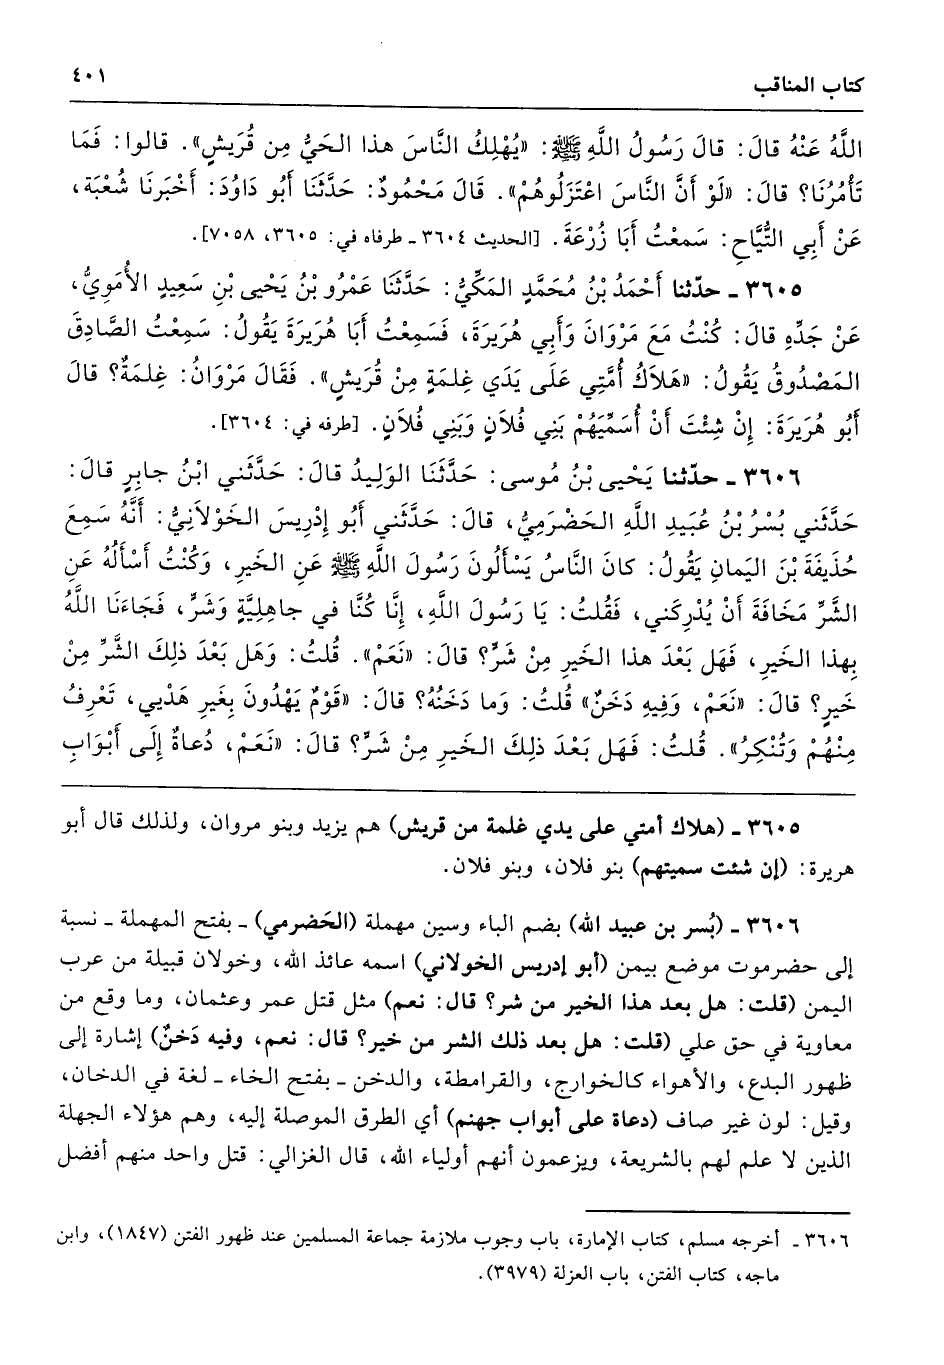 كتاب المناقب
٤٠١
اللَّهُ عَنْهُ قالَ: قالَ رَسُولُ اللَّهِ ﷺ: «يُهْلِكُ النَّاسَ هذا الحَيُّ مِن قُرَيشٍ». قالوا: فَمَا
تَأْمُرُنَا؟ قالَ: «لَوْ أَنَّ النَّاسَ اعْتَزَلُوهُمْ». قَالَ مَحْمُودٌ: حَدَّثَنَا أَبُو دَاوُدَ: أَخْبَرَنَا شُعْبَة،
عَنْ أَبِي التَّيَّاحِ: سَمعْتُ أَبَا زُرْعَةَ. [الحديث ٣٦٠٤ ـ طرفاه في: ٣٦٠٥، ٧٠٥٨].
٣٦٠٥ ـ حدّثنا أَحْمَدُ بْنُ مُحَمَّدٍ المَكِّيُّ: حَدَّثَنَا عَمْرُو بْنُ يَحْيى بْنِ سَعِيدٍ الأُمَوِيُّ،
عَنْ جَدِّهِ قالَ: كُنْتُ مَعَ مَرْوَانَ وَأَبِي هُرَيرَةَ، فَسَمِعْتُ أَبَا هُرَيرَةَ يَقُولُ: سَمِعْتُ الصَّادِقَ
المَصْدُوقُ يَقُولُ: «هَلاَكُ أُمَّتِي عَلَى يَدَي غِلمَةٍ مِنْ قُرَيشٍ». فَقَالَ مَرْوَانُ: غِلمَةٌ؟ قالَ
أَبُو هُرَيرَةَ: إِنْ شِئْتَ أَنْ أُسَمِّيَهُمْ بَنِي فُلاَنٍ وَبَنِي فُلاَنٍ. [طرفه في: ٣٦٠٤].
٣٦٠٦ ـ حدّثنا يَحْيى بْنُ مُوسى: حَدَّثَنَا الوَلِيدُ قالَ: حَدَّثَني ابْنُ جابِرٍ قالَ:
حَدَّثَني بُسْرُ بْنُ عُبَيدِ اللَّهِ الحَضْرَمِيُّ، قالَ: حَدَّثَني أَبُو إِدْرِيسَ الخَوْلاَنِيُّ: أَنَّهُ سَمِعَ
حُذَيفَةَ بْنَ اليَمانِ يَقُولُ: كانَ النَّاسُ يَسْأَلُونَ رَسُولَ اللَّهِ ﷺ عَنِ الخَيرِ، وَكُنْتُ أَسْأَلُهُ عَنِ
الشَّرِّ مَخَافَةَ أَنْ يُدْرِكَني، فَقُلتُ: يَا رَسُولَ اللَّهِ، إِنَّا كُنَّا في جاهِلِيَّةٍ وَشَرٍّ، فَجَاءَنَا اللَّهُ
بِهذا الخَيرِ، فَهَل بَعْدَ هذا الخَيرِ مِنْ شَرٍّ؟ قالَ: «نَعَمْ». قُلتُ: وَهَل بَعْدَ ذلِكَ الشَّرِّ مِنْ
خَيرٍ؟ قالَ: «نَعَمْ، وَفِيهِ دَخَنٌ» قُلتُ: وَما دَخَنُهُ؟ قالَ: «قَوْمٌ يَهْدُونَ بِغَيرِ هَدْيي، تَعْرِفُ
مِنْهُمْ وَتُنْكِرُ». قُلتُ: فَهَل بَعْدَ ذلِكَ الخَيرِ مِنْ شَرٍّ؟ قالَ: «نَعَمْ، دُعاةٌ إِلَى أَبْوَابِ
٣٦٠٥ ـ (هلاك أمتي على يدي غلمة من قريش) هم يزيد وبنو مروان، ولذلك قال أبو
هريرة: (إن شئت سميتهم) بنو فلان، وبنو فلان.
٣٦٠٦ ـ (بُسر بن عبيد الله) بضم الباء وسين مهملة (الحَضرمي) ـ بفتح المهملة ـ نسبة
إلى حضرموت موضع بيمن (أبو إدريس الخولاني) اسمه عائذ الله، وخولان قبيلة من عرب
اليمن (قلت: هل بعد هذا الخير من شر؟ قال: نعم) مثل قتل عمر وعثمان، وما وقع من
معاوية في حق علي (قلت: هل بعد ذلك الشر من خير؟ قال: نعم، وفيه دَخنٌ) إشارة إلى
ظهور البدع، والأهواء كالخوارج، والقرامطة، والدخن ـ بفتح الخاء ـ لغة في الدخان،
وقيل: لون غير صاف (دعاة على أبواب جهنم) أي الطرق الموصلة إليه، وهم هؤلاء الجهلة
الذين لا علم لهم بالشريعة، ويزعمون أنهم أولياء الله، قال الغزالي: قتل واحد منهم أفضل
٣٦٠٦ ـ أخرجه مسلم، كتاب الإمارة، باب وجوب ملازمة جماعة المسلمين عند ظهور الفتن (١٨٤٧)، وابن
ماجه، كتاب الفتن، باب العزلة (٣٩٧٩).